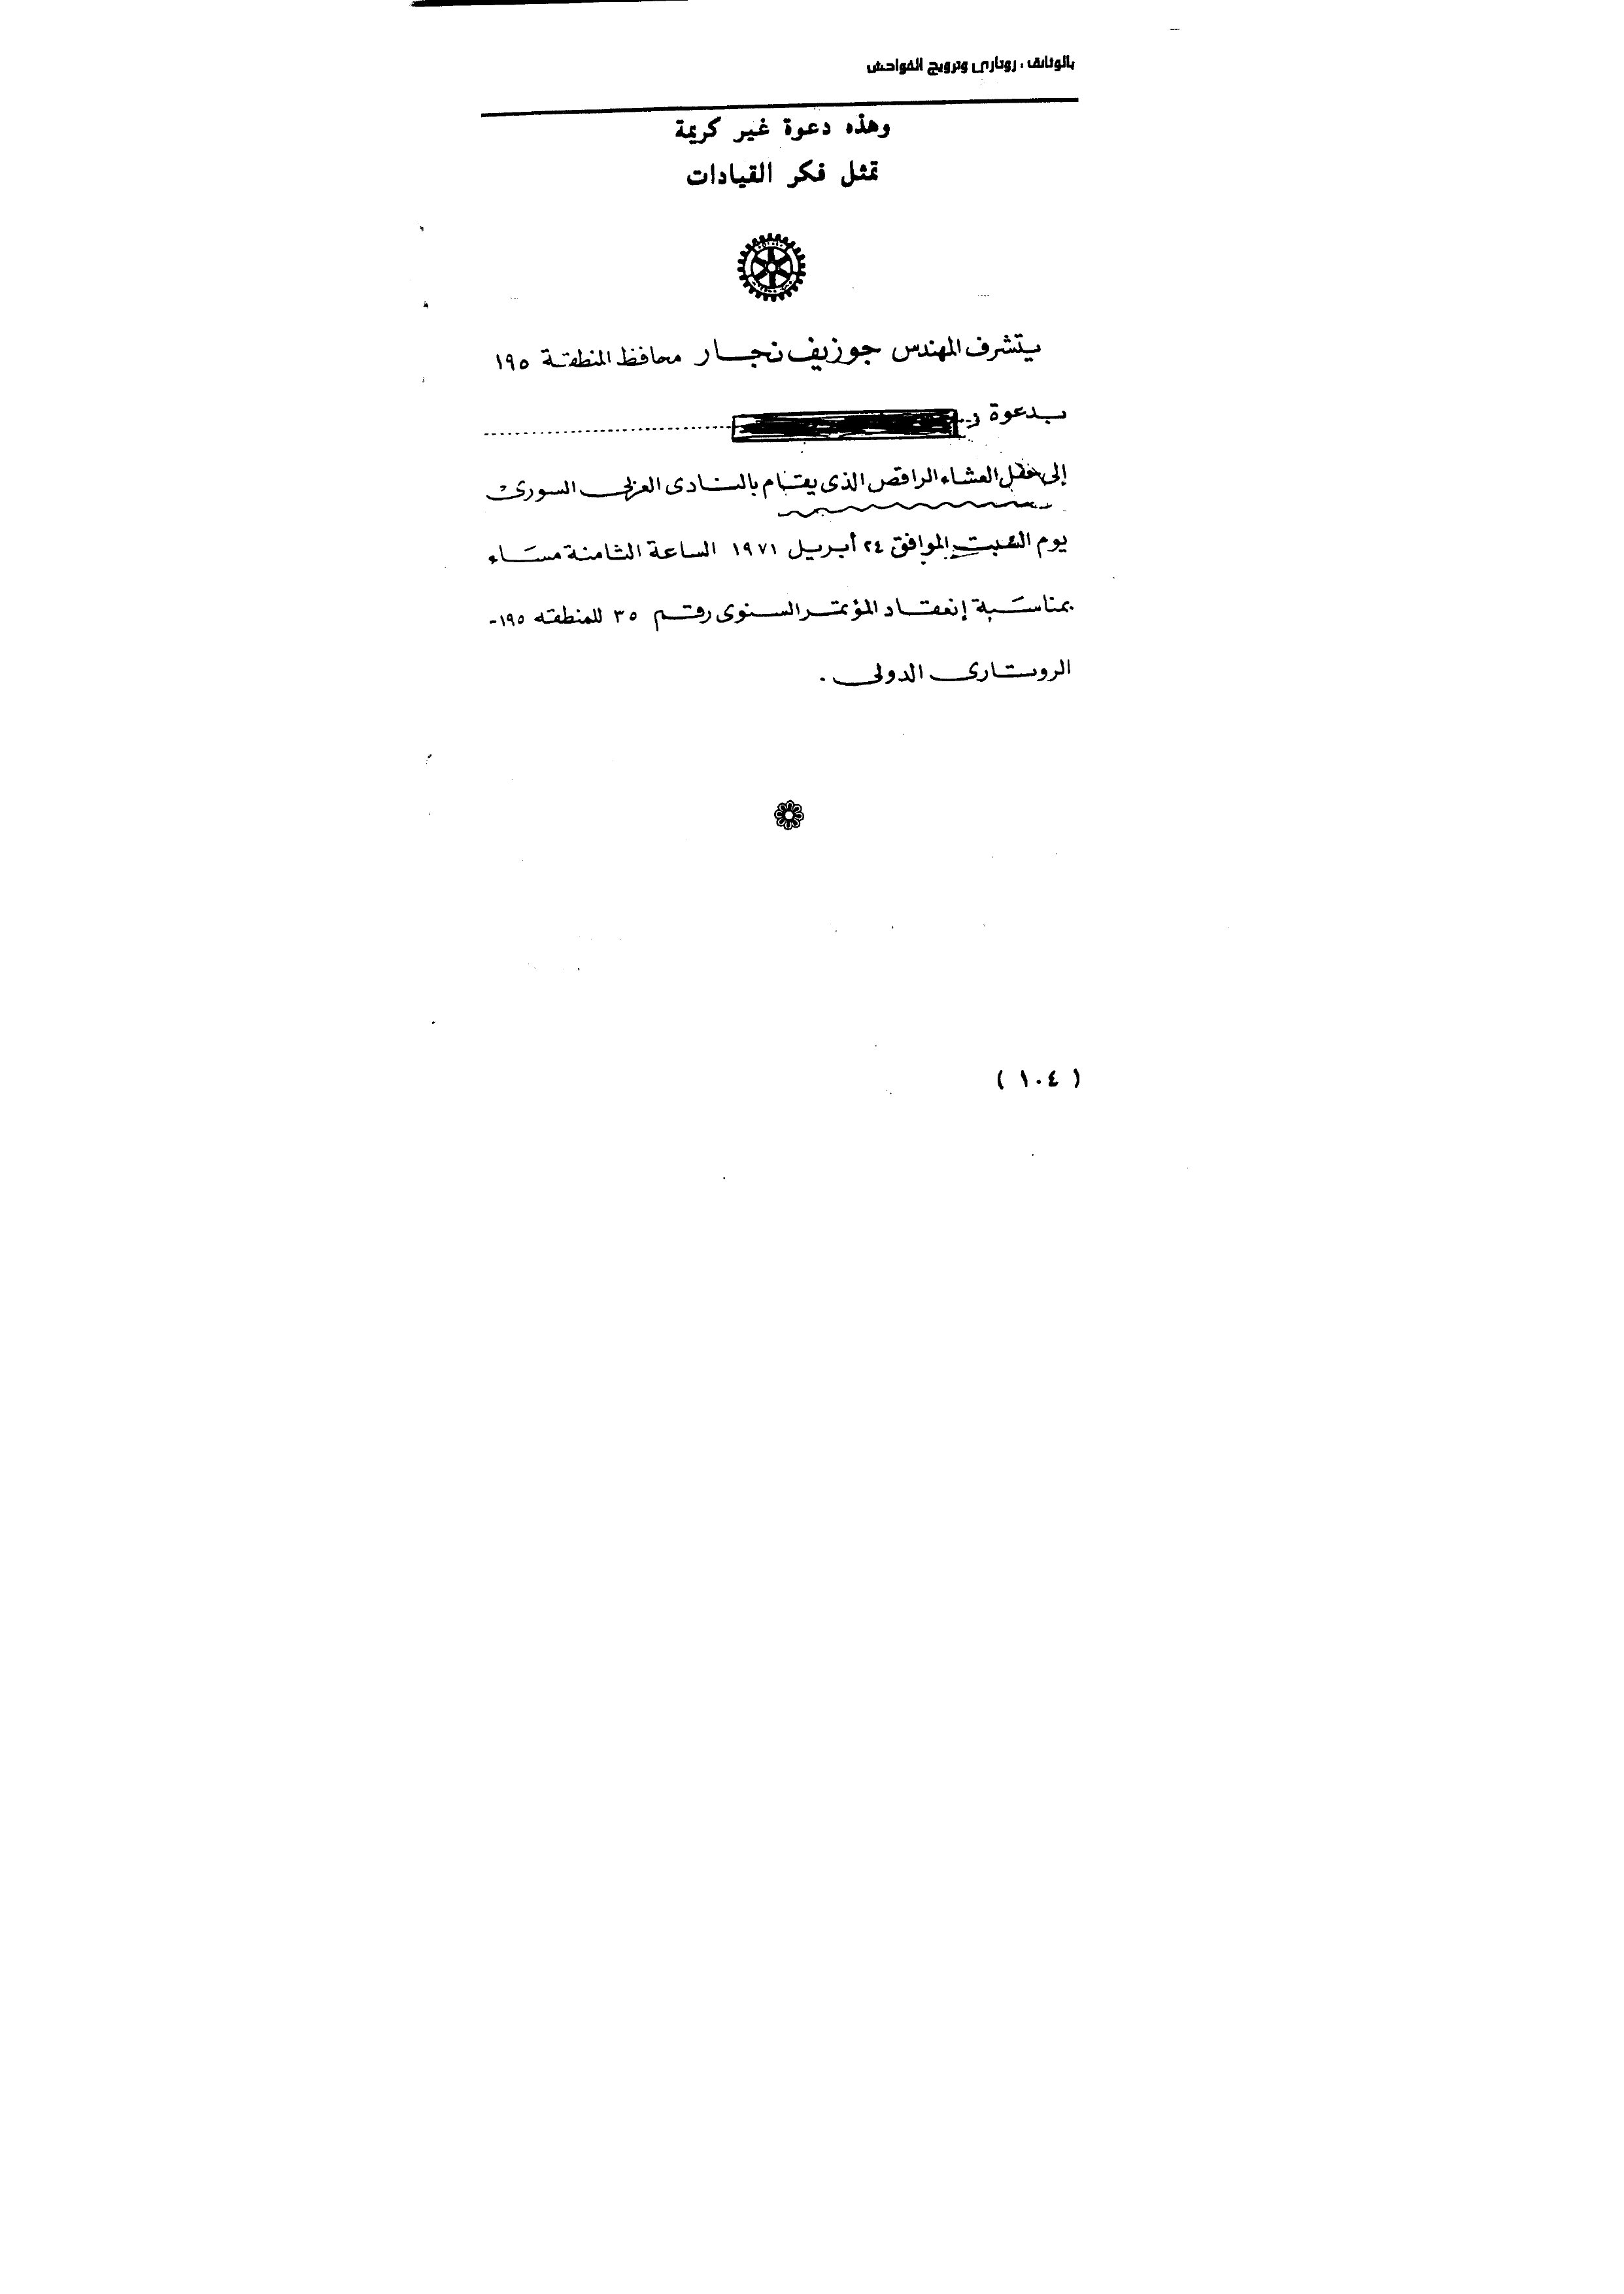 بالوثائق ، روتارى وترويج الفواحش
وهذه دعوة غير كريمة
تمثل فكر القيادات
يتشرف المهندس جوزيف نجار محافظ المنطقة ١٩٥
بدعوة
إلى حفل العشاء الراقص الذى يقام بالنادى العربى السورى
يوم السبت الموافق ٢٤ أبريل ١٩٧١ الساعة الثامنة مساء
بمناسبة إنعقاد المؤتمر السنوى رقم ٣٥ للمنطقه ١٩٥-
الروتارى الدولى .
( ١٠٤ )